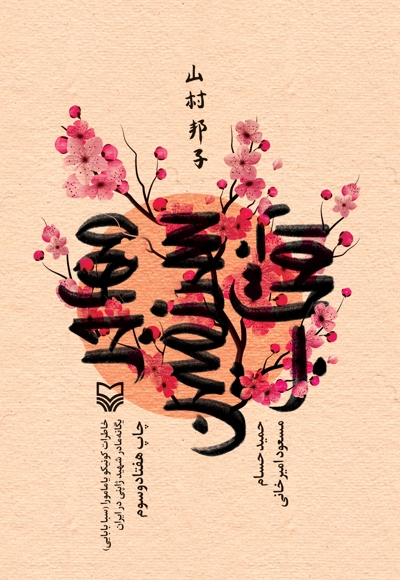 山村邦子
مهاجر
سرزمین
آفتاب
خاطرات کونیکو یامامورا (سبا بابایی)
یگانه مادر شهید ژاپنی در ایران
چاپ هفتادوسوم
حمید حسام
مسعود امیرخانی